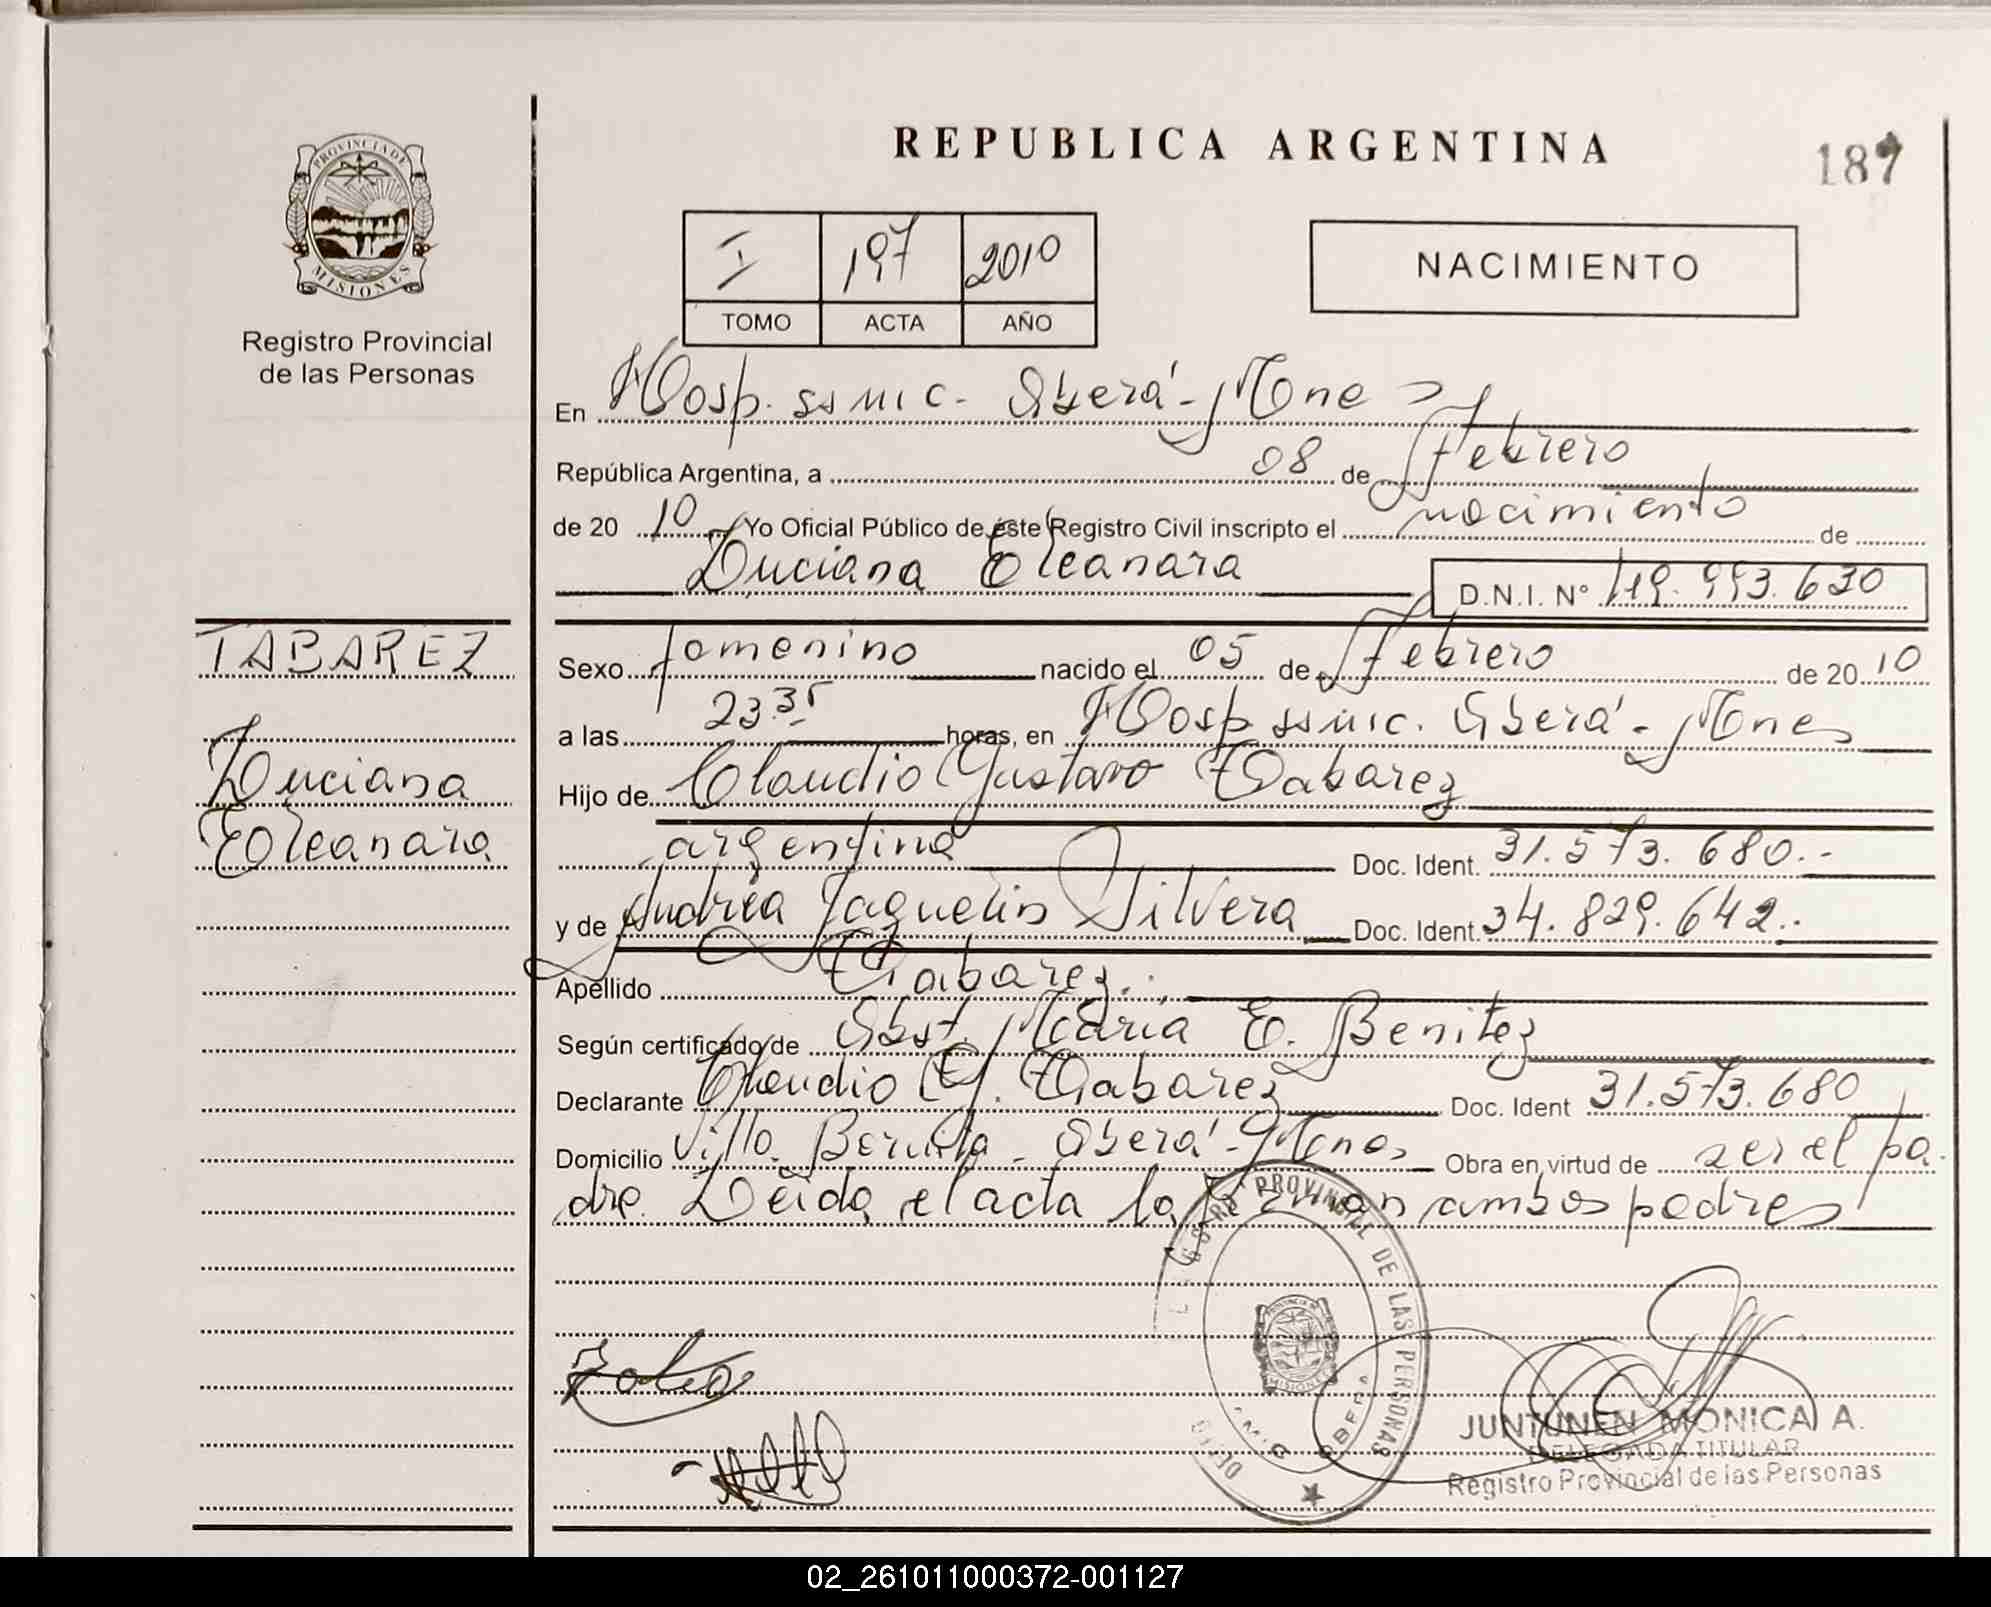 REPUBLICA ARGENTINA
187
PROVINCIA DE
MISIONES
Registro Provincial
de las Personas
I 197 2010
TOMO ACTA AÑO
NACIMIENTO
En Hosp. ssmic. Oberá - Mnes
República Argentina, a 08 de febrero
de 20 10 Yo Oficial Público de éste Registro Civil inscripto el nacimiento de
Luciana Eleanara
D.N.I. Nº 49.993.630
TABAREZ
Luciana
Eleanara
Sexo femenino nacido el 05 de febrero de 20 10
a las 23.35 horas, en Hosp ssmic. Oberá - Mnes
Hijo de Claudio Gustavo Tabarez
argentina Doc. Ident. 31.573.680.-
y de Andrea Jaquelin Silvera Doc. Ident. 34.829.642.-
Apellido Tabarez.
Según certificado de Obst. María E. Benitez
Declarante Claudio G. Tabarez Doc. Ident 31.573.680
Domicilio Villa Oberá - Mnes Obra en virtud de ser el pa
dre. Leida el acta la firman ambos padres
PROVINCIAL DE LAS PERSONAS
MISIONES
OBERA
JUNTUNEN MONICA A.
DELEGADA TITULAR
Registro Provincial de las Personas
02_261011000372-001127